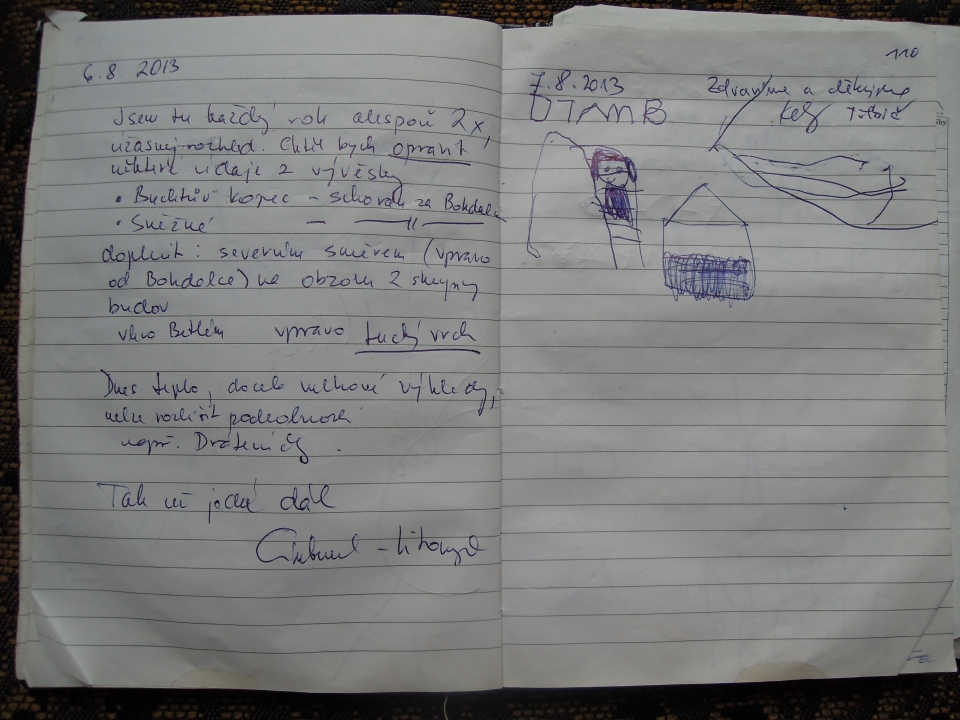 6.8 2013
Jsem tu každý rok alespoň 2x,
úžasný rozhled. Chtěl bych opravit
některé údaje z vývěsky
• Buchtův kopec - schován za Bohdalec
• Sněžné — — 〃 —
doplnit: severním směrem (vpravo
od Bohdalce) na obzoru 2 skupiny
budov
vlevo Betlém vpravo Suchý vrch
Dnes teplo, docela mlhavé výhledy,
nelze rozlišit podrobnosti
např. Drátenič
Tak už jedu dál
110
7.8.2013
Zdravíme a děkujeme